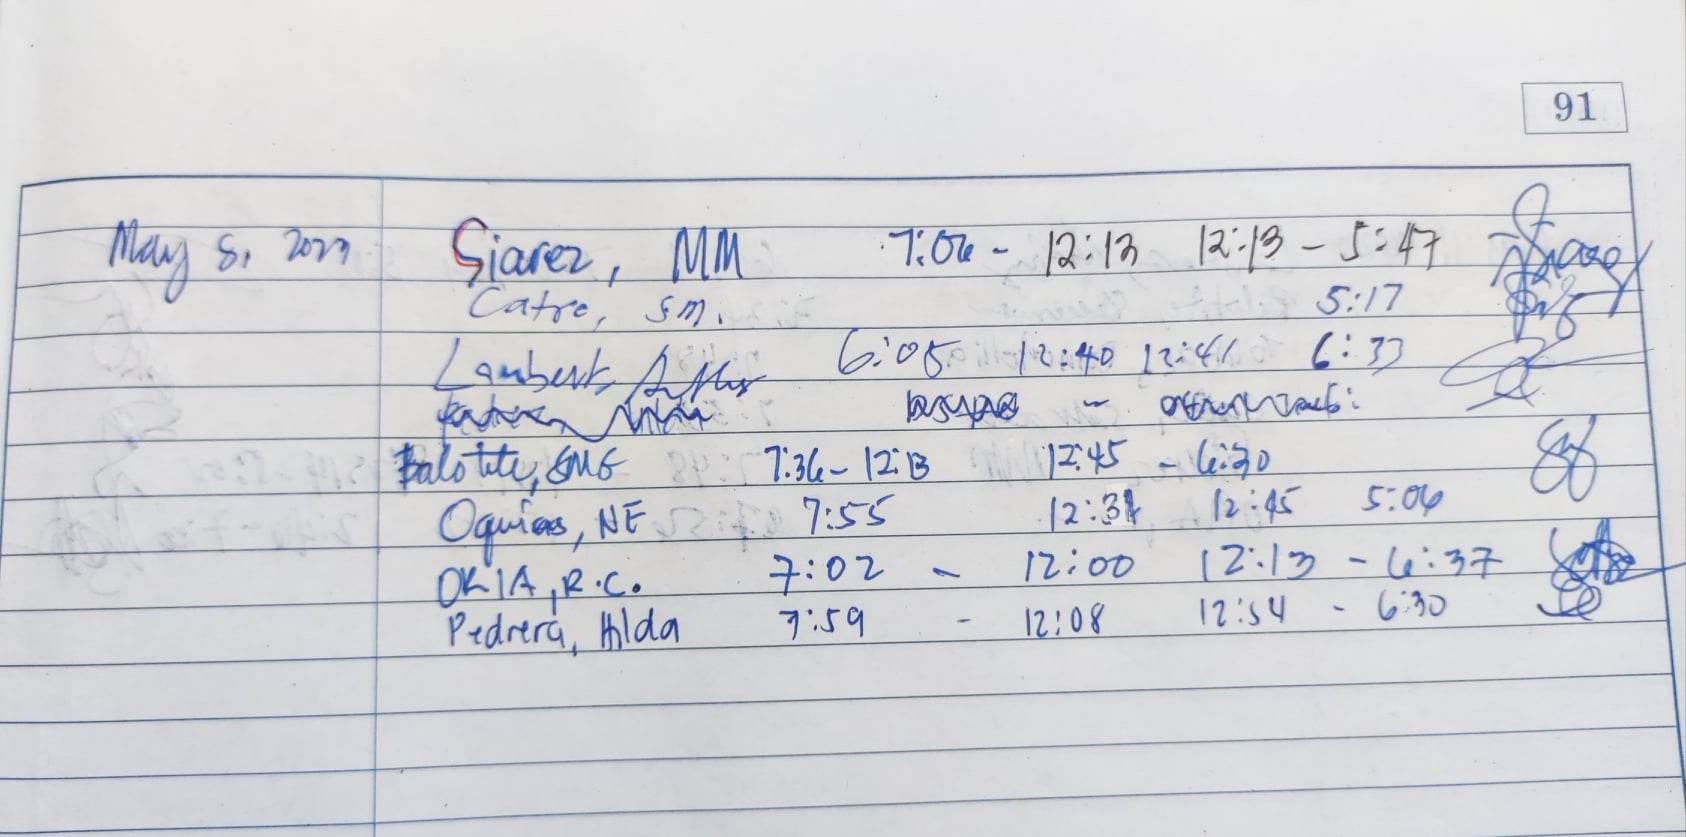 91
May 8, 2023 Siarez, MM 7:06 - 12:13 12:13 - 5:47
Catre, SM. 5:17
Lambert 6:05 12:40 12:41 6:33
Balotite, GMG 7:36 - 12:13 12:45 - 6:30
Oquias, NE 7:55 12:31 12:45 5:06
OKIA, R.C. 7:02 - 12:00 12:13 - 6:37
Pedrera, Hilda 7:59 - 12:08 12:54 - 6:30